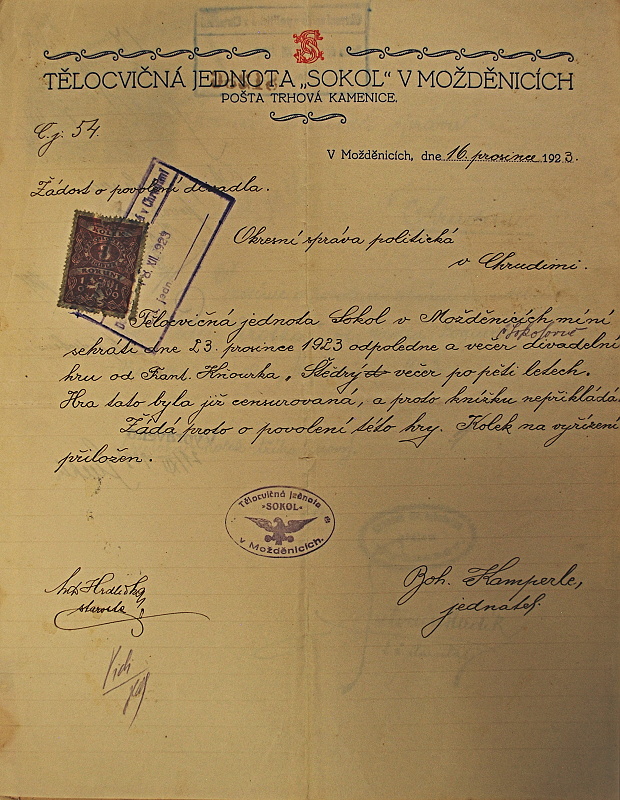 TĚLOCVIČNÁ JEDNOTA „SOKOL" V MOŽDĚNICÍCH
POŠTA TRHOVÁ KAMENICE.
Č.j. 54.
V Možděnicích, dne 16. prosince 1923.
Žádost o povolení divadla.
Okresní správa politická
v Chrudimi.
Tělocvičná jednota Sokol v Možděnicích míní
v Sokolovně
sehráti dne 23. prosince 1923 odpoledne a večer divadelní
hru od Frant. „Štědrý večer po pěti letech.
Hra tato byla již censurovaná, a proto knížku nepřikládá.
Žádá proto o povolení této hry. Kolek na vyřízení
přiložen.
Tělocvičná jednota
»SOKOL«
v Možděnicích.
Ant. Hrdlička
starosta
Boh. Kamperle,
jednatel.